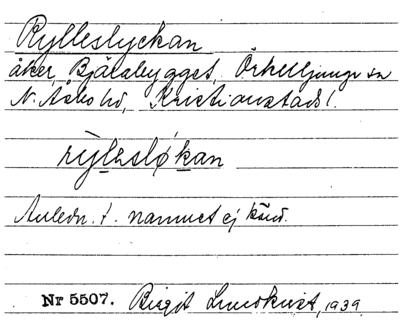 Rylleslyckan
åker, Bjärabygget, Örkelljunga sn
N. Åsbo hd, Kristianstads l.
rỳlesló̜kan
Anledn. t. namnet ej känd.
Nr 5507. Birgit Lundkvist, 1939